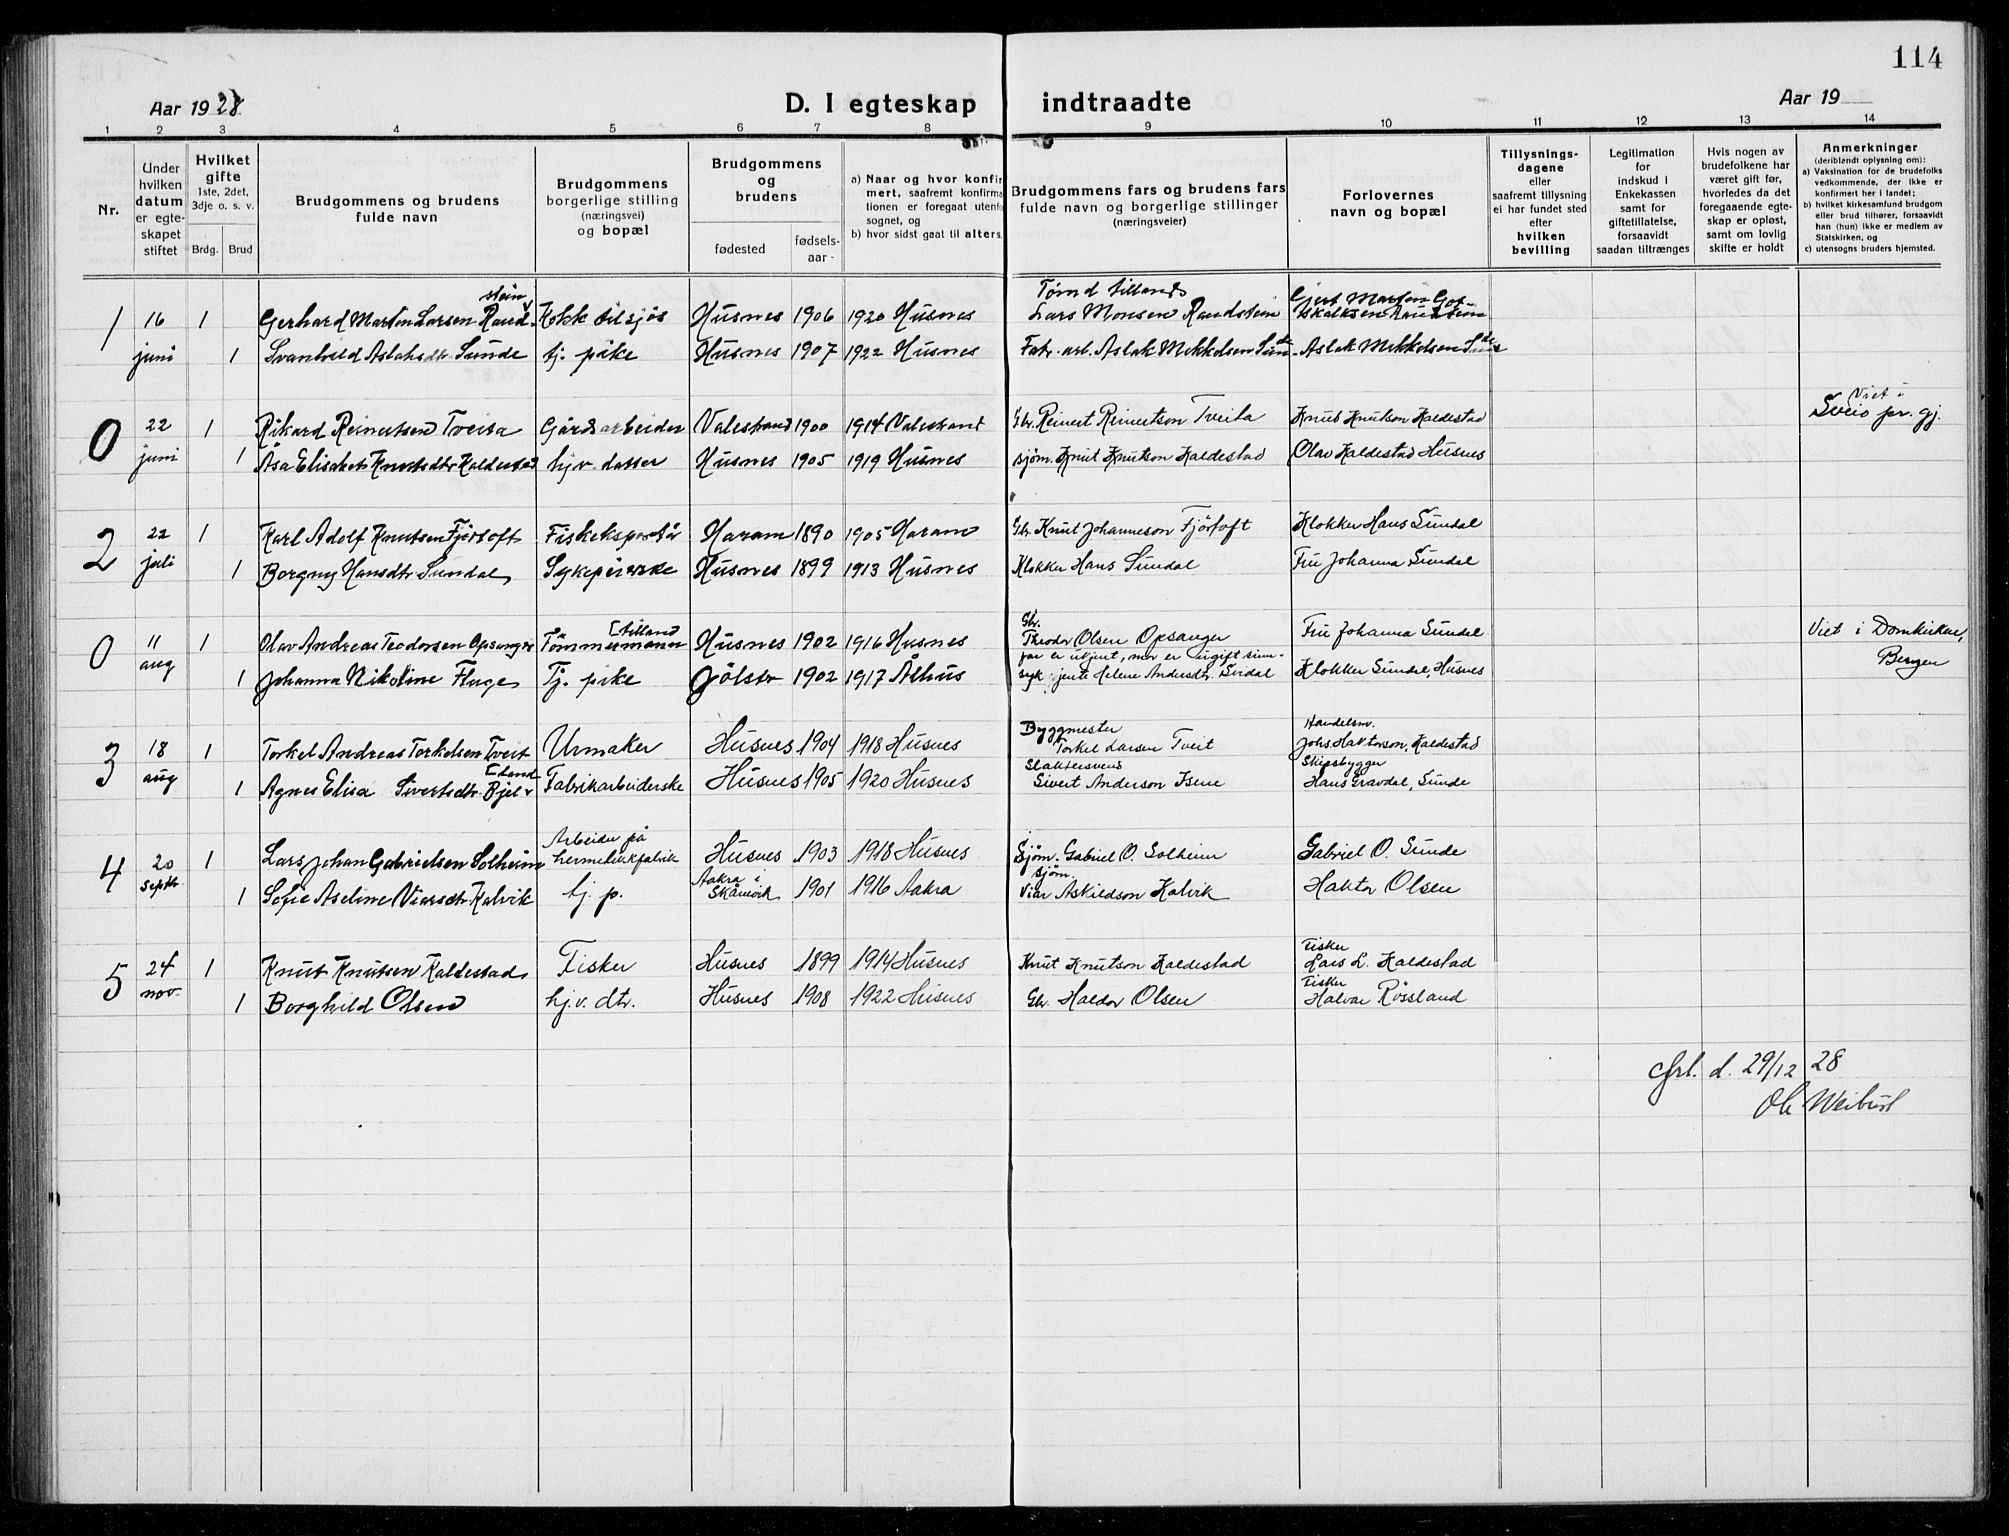 114
Aar 1928
D. I egteskap indtraadte
Aar 19
1 2 3 4 5 6 7 8 9 10 11 12 13 14
Nr.
Under hvilken datum er egteskapet stiftet
Hvilket gifte
1ste, 2det, 3dje o. s. v.
Brdg. Brud
Brudgommens og brudens fulde navn
Brudgommens borgerlige stilling (næringsvei) og bopæl
Brudgommens og brudens
fødested
fødsels-aar
a) Naar og hvor konfir
mert, saafremt konfirma
tionen er foregaat utenfo
sognet, og
b) hvor sidst gaat til alters.
Brudgommens fars og brudens fars
fulde navn og borgerlige stillinger
(næringsveier)
Forlovernes
navn og bopæl
Tillysnings-
dagene
eller
saafremt tillysning
ei har fundet sted
efter
hvilken
bevilling
Legitimation
for
indskud i
Enkekassen
samt for
giftetillatelse,
forsaavidt
saadan tiltrænges
Hvis nogen av
brudefolkene har
været gift før,
hvorledes da det
foregaaende egte-
skap er opløst,
samt om lovlig
skifte er holdt
Anmerkninger
(deriblandt oplysning om):
a) Vaksination for de brudefolks
vedkommende, der ikke er
konfirmert her i landet;
b) hvilket kirkesamfund brudgom
eller brud tilhører, forsaavidt
han (hun) ikke er medlem av
Statskirken, og
c) utensogns bruders hjemsted.
1 16 juni 1 Gerhard Marton Larsen Randstein Kokk tilsjøs Husnes 1906 1920 Husnes Tømd tilland Lars Monsen Randstein Gjert Marton Got-skalksen Randstein
1 Svanhild Aslaksdtr Sunde tj. pike Husnes 1907 1922 Husnes Fabr. arb. Aslak Mikkelsen Sunde Aslak Mikkelsen Sunde
0 22 juni 1 Rikard Reinertsen Tveita Gårdsarbeider Valestrand 1900 1914 Valestrand Gbr. Reinert Reinertson Tveita Knut Knutson Kaldestad Viet i Sveio pr. gj.
1 Åsa Elisabet Knutsdtr Kaldestad hjv. datter Husnes 1905 1919 Husnes sjøm. Knut Knutson Kaldestad Olav Kaldestad Husnes
2 22 juli 1 Karl Adolf Knutsen Fjørtoft Fiskeksportør Haram 1890 1905 Haram Gbr. Knut Johanneson Fjörtoft Klokker Hans Sundal
1 Borgny Hansdtr Sundal Sykepleierske Husnes 1899 1913 Husnes Klokker Hans Sundal Fru Johanna Sundal
0 11 aug 1 Olav Andreas Teodorsen Opsanger Tømmermann [tilland Husnes 1902 1916 Husnes Gbr. Theodor Olsen Opsanger Fru Johanna Sundal Viet i Domkirken, Bergen
1 Johanna Nikoline Fluge Tj. pike Jølster 1902 1917 Ålhus far er ukjent, mor er ugift sinn-syk jente Helene Andersdtr. Svidal Klokker Sundal, Husnes
3 18 aug 1 Torkel Andreas Torkelsen Tveit Urmaker Husnes 1904 1918 Husnes Byggmester Torkel Larsen Tveit Handelsm. Johs Haktorson, Kaldestad
1 Agnes Elisa Sivertsdtr. Bjel-[land Fabrikarbeiderske Husnes 1905 1920 Husnes Slaktersvenn Sivert Anderson Isene Skipsbygger Hans Gravdal, Sunde
4 20 septbr. 1 Lars Johan Gabrielsen Solheim Arbeider på hermetikkfabrik Husnes 1903 1918 Husnes Sjøm. Gabriel O. Solheim Gabriel O. Sunde
1 Sofie Aseline Viarsdtr Kalvik tj. p. Aakra i Skånevik 1901 1916 Aakra sjøm. Viar Askildson Kalvik Haktor Olsen
5 24 nov. 1 Knut Knutsen Kaldestad Fisker Husnes 1899 1914 Husnes Knut Knutson Kaldestad Fisker Lars L. Kaldestad
1 Borghild Olsen hj.v. dtr. Husnes 1908 1922 Husnes Gbr. Haldor Olsen Fisker Halvar Røssland
d. 29/12 28